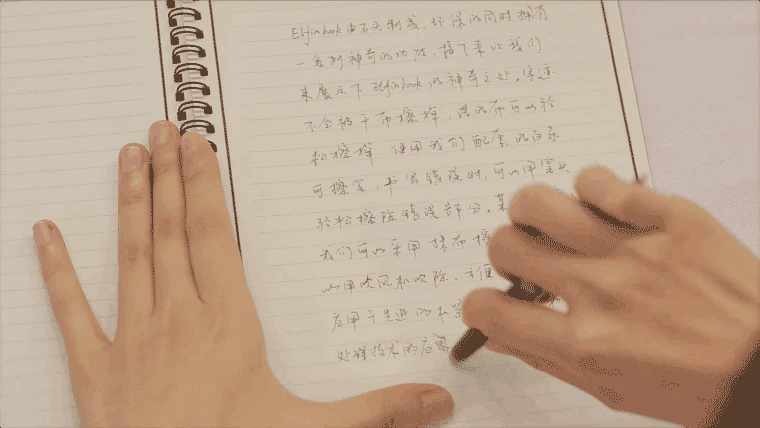 Elfinbook由石头制成,环保的同时拥有
一系列神奇的功效,接下来让我们
来展示下Elfinbook的神奇之处。字迹
不会被干布擦掉,湿的布可以轻
松擦掉,使用我们配套的
可擦笔,书写错误时,可以用笔头
轻松擦除错误部分。某
我们可以采用抹布擦
以用吹风机吹除,方便
应用于先进的
处理技术的应